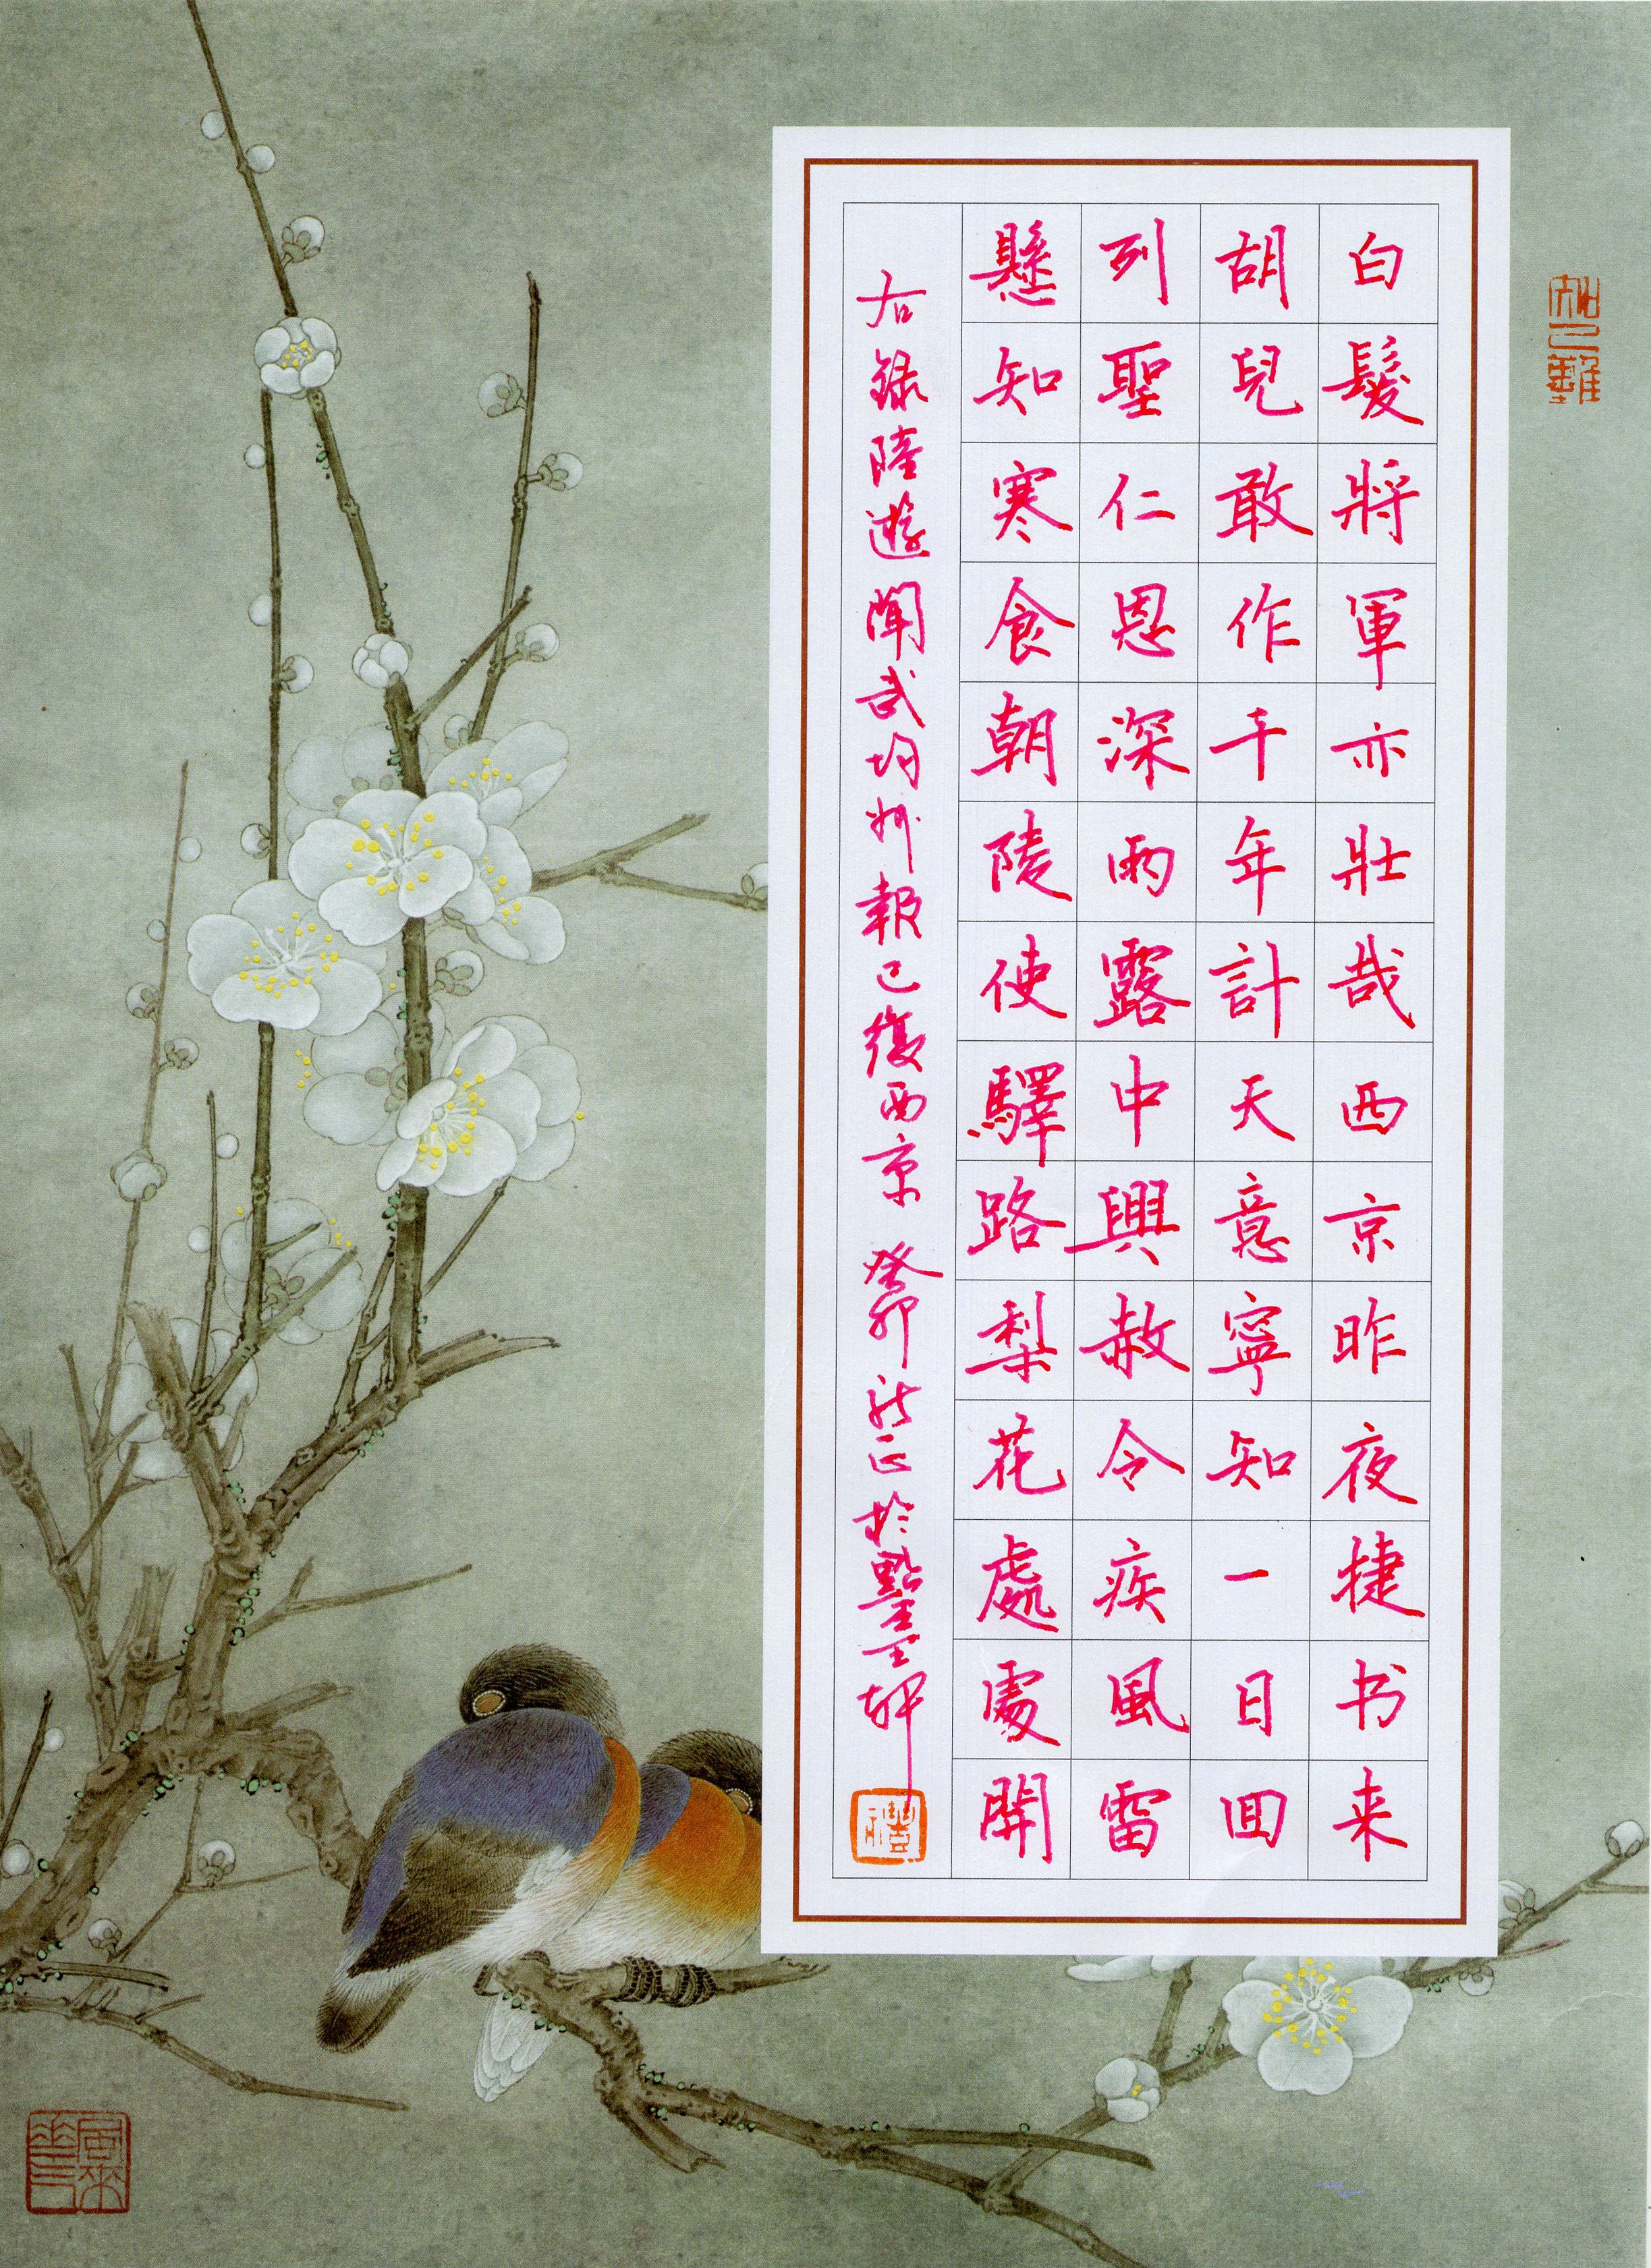 白髮將軍亦壯哉西京昨夜捷书来
胡兒敢作千年計天意寧知一日囬
列聖仁恩深雨露中興赦令疾風雷
懸知寒食朝陵使驛路梨花處處開
右錄陸遊聞武均州報已復西京 癸卯新正於
禮